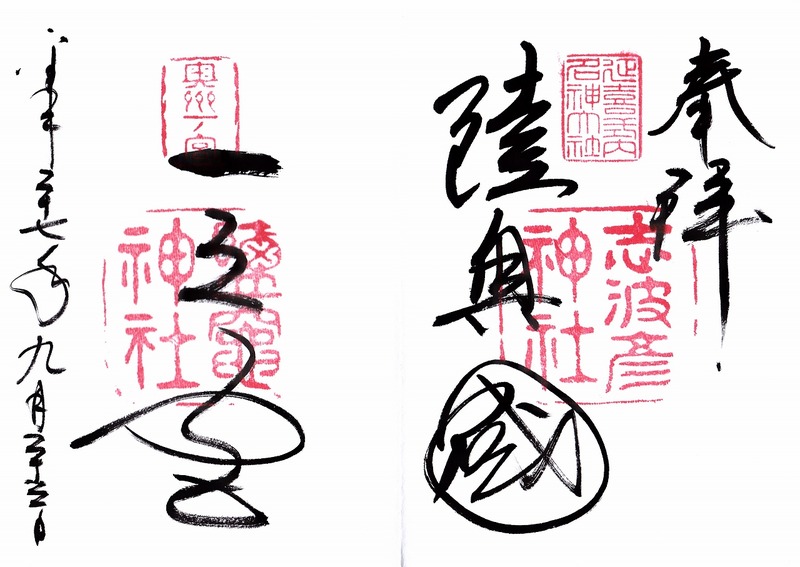 奉拝
延喜式内
名神大社
志波彦
神社
陸奥國
奥州一ノ宮
鹽竈
神社
一之宮
平成二十七年九月二十六日